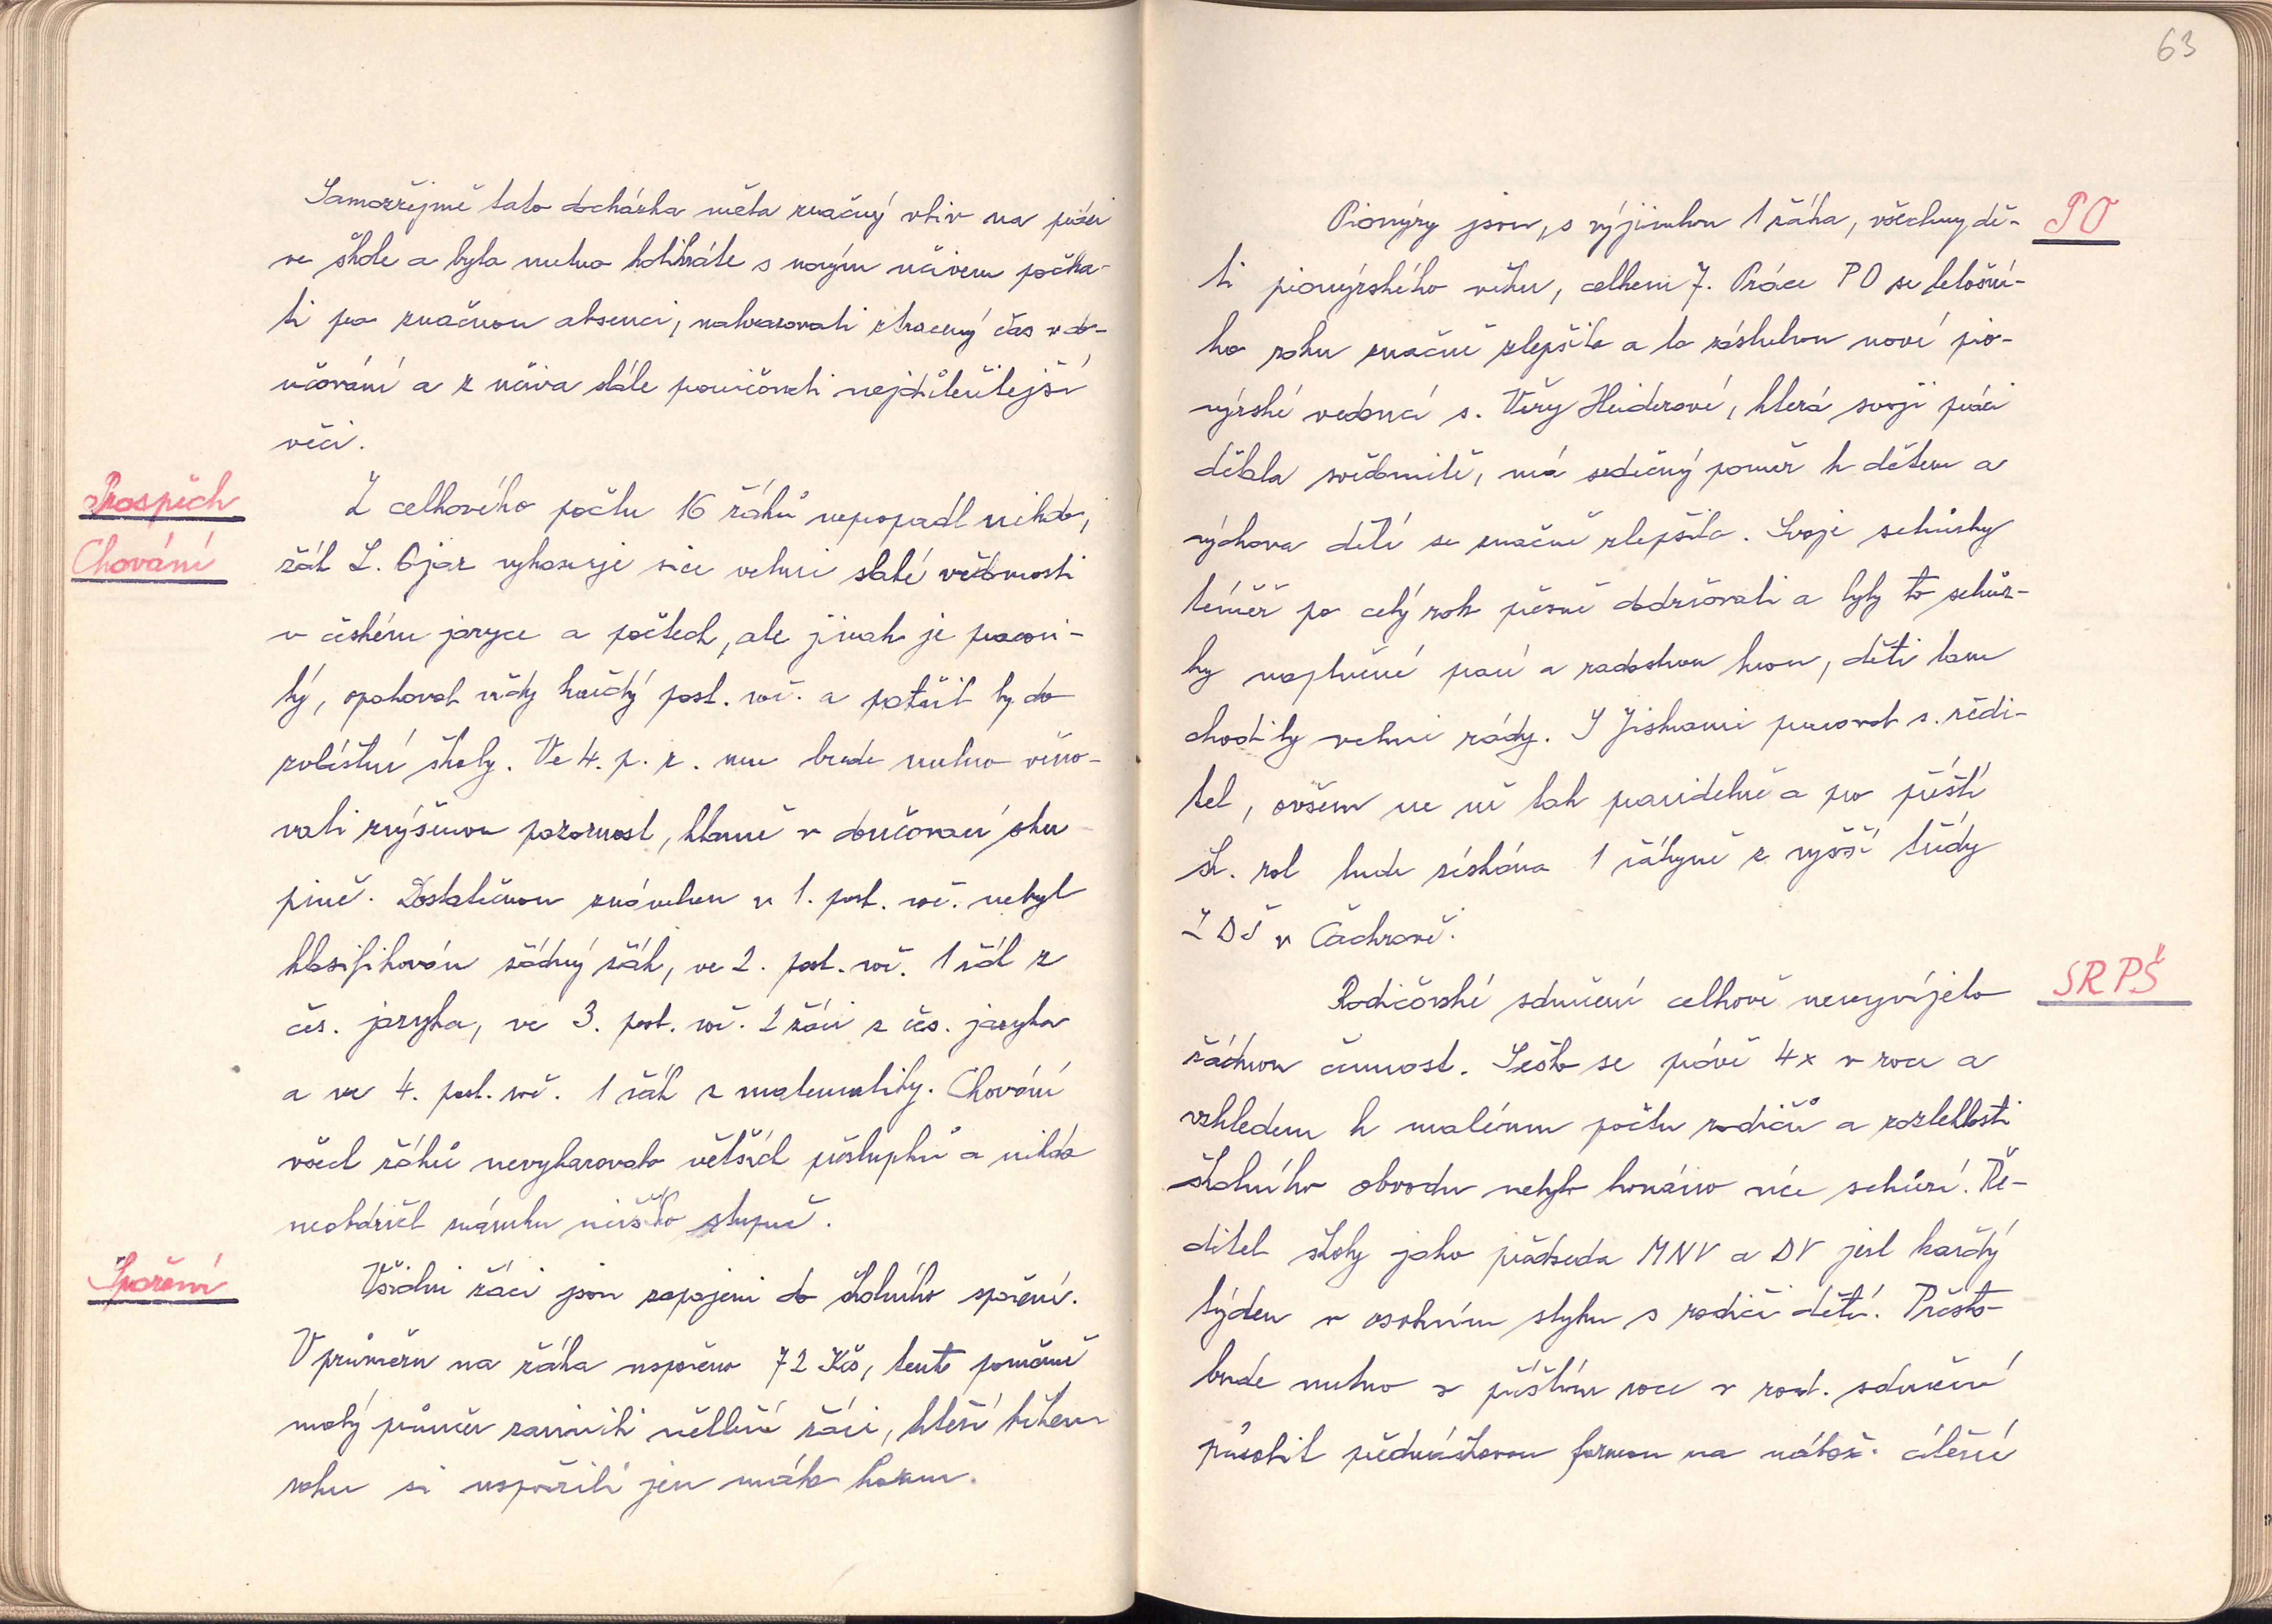 Samozřejmě tato docházka měla značný vliv na práci
ve škole a bylo nutno kolikráte s novým učivem počka-
ti po značnou absenci, nahrazovati ztracený čas v do-
učování a z učiva stále procvičovati nejdůležitější
věci.
Prospěch
Z celkového počtu 16 žáků nepropadl nikdo,
Chování
žák L. vykazuje sice velmi slabé vědomosti
v českém jazyce a počtech, ale jinak je pracovi-
tý, opakoval vždy každý post. roč. a patřil by do
zvláštní školy. Ve 4. p. r. mu bude nutno věno-
vati zvýšenou pozornost, hlavně v doučovací sku-
pině. Dostatečnou známkou v 1. post. roč. nebyl
klasifikován žádný žák, ve 2. post. roč. 1 žák z
čes. jazyka, ve 3. post. roč. 2 žáci z čes. jazyka
a ve 4. post. roč. 1 žák z matematiky. Chování
všech žáků nevykazovalo větších přestupků a nikdo
neobdržel známku nižšího stupně.
Spoření
Všichni žáci jsou zapojeni do školního spoření.
V průměru na žáka uspořeno 72 Kčs, tento poměrně
malý průměr zavinili někteří žáci, kteří během
roku si uspořili jen málo korun.
63
Pionýry jsou, s výjimkou 1 žáka, všechny dě-
PO
ti pionýrského věku, celkem 7. Práce PO se letošní-
ho roku značně zlepšila a to zásluhou nové pio-
nýrské vedoucí s. Věry Heiderové, která svoji práci
dělala svědomitě, má srdečný poměr k dětem a
výchova dětí se značně zlepšila. Svoje schůzky
téměř po celý rok přesně dodržovali a byly to schůz-
ky naplněné prací a radostnou hrou, děti tam
chodily velmi rády. S Jiskrami pracoval s. ředi-
tel, ovšem ne už tak pravidelně a pro příští
šk. rok bude získána 1 žákyně z vyšší třídy
ZDŠ v Čachrově.
Rodičovské sdružení celkově nevyvíjelo
SRPŠ
žádnou činnost. Sešlo se právě 4x v roce a
vzhledem k malému počtu rodičů a rozlehlosti
školního obvodu nebylo konáno více schůzí. Ře-
ditel školy jako předseda MNV a DV jest každý
týden v osobním styku s rodiči dětí. Přesto
bude nutno v příštím roce v rod. sdružení
působit přednáškovou formou na nábož. cítění